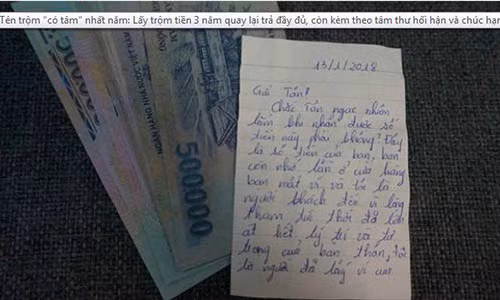 Tên trộm "có tâm" nhất năm: Lấy trộm tiền 3 năm quay lại trả đầy đủ, còn kèm theo tâm thư hối hận và chúc hạn
NGÂN HÀNG NHÀ NƯỚC VIỆT NAM
500000
13/1/2018
Gửi Tấn!
Chắc Tấn ngạc nhiên
lắm khi nhận được số
tiền này phải không? Đây
là số tiền của bạn, bạn
còn nhớ lần ở cửa hàng
bạn mất ví, và tôi là
người khách đến vì lòng
tham tức thời đã lấn
át hết lý trí và tự
trọng của bản thân, tôi
là người đã lấy ví của